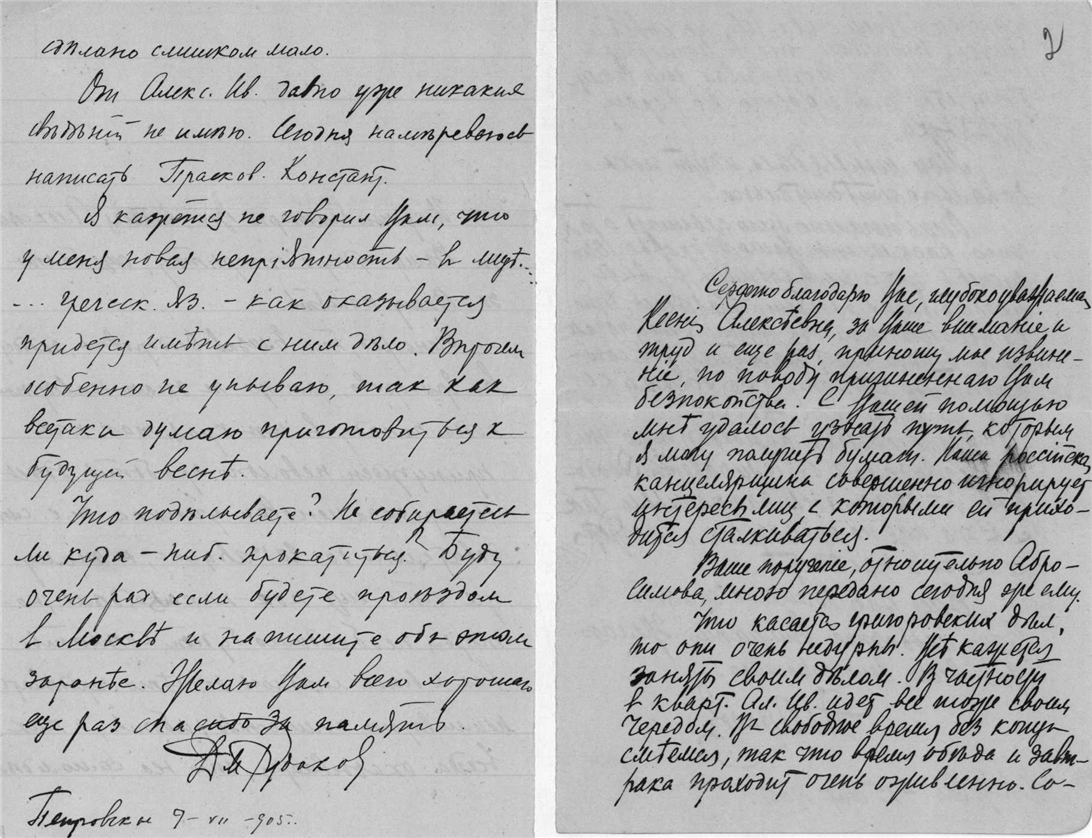 сплано слишком мало.
От Алекс. Ив. давно уже никаких
свѣдѣній не имѣю. Сегодня намѣреваюсь
написать Прасков. Констант.
Я кажется не говорил Вам, что
у меня новая непріятность – в
... греческ. яз. – как оказывается
придется имѣть с ним дѣло. Впрочем
особенно не унываю, так как
всетаки думаю приготовиться к
будущей веснѣ.
Что подѣлываете? Не собираетесь
ли куда-ниб. прокатиться? Буду
очень рад если будете проѣздом
в Москвѣ и напишите обь этом
заранѣе. Желаю Вам всего хорошаго
еще раз спасибо за память
Петровское 7 – VII – 905 г.
2
Сердечно благодарю Вас, глубокоуважаемая
Ксенія Алексѣевна, за Ваше вниманіе и
труд и еще раз, приношу мое извине-
ніе, по поводу причиненнаго Вам
безпокойства. С Вашей помощью
мнѣ удалось узнать путь которым
я могу получить бумаги. Наша россійская
канцелярщина совершенно игнорирует
интересы лиц с которыми ей прихо-
дится сталкиваться.
Ваше порученіе, относительно Абро-
симова, мною передано сегодня же ему.
Что касается григоровских дѣл,
то они очень недурны. Всѣ кажется
заняты своим дѣлом. В частности
в кварт. Ал. Ив. идет все тоже своим
чередом. В свободное время без конца
смѣемся, так что время обѣда и завт-
рака проходит очень оживленно. Со-